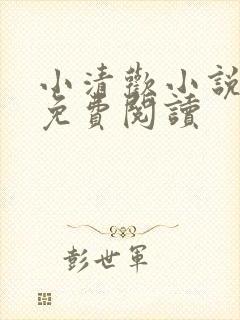 小清歡小說
免費閱讀
彭世軍